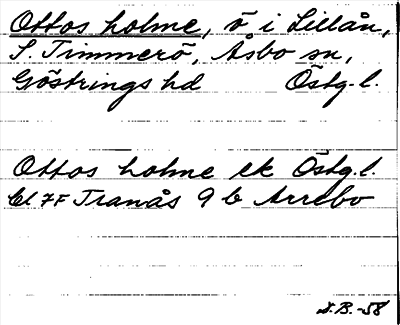 Ottos holme, ö i Lillån,
S. Timmerö, Åsbo sn,
Göstrings hd Östg.l.
Ottos holme ek Östg.l.
bl 7F Tranås 9 b Arrebo
S.B.-58